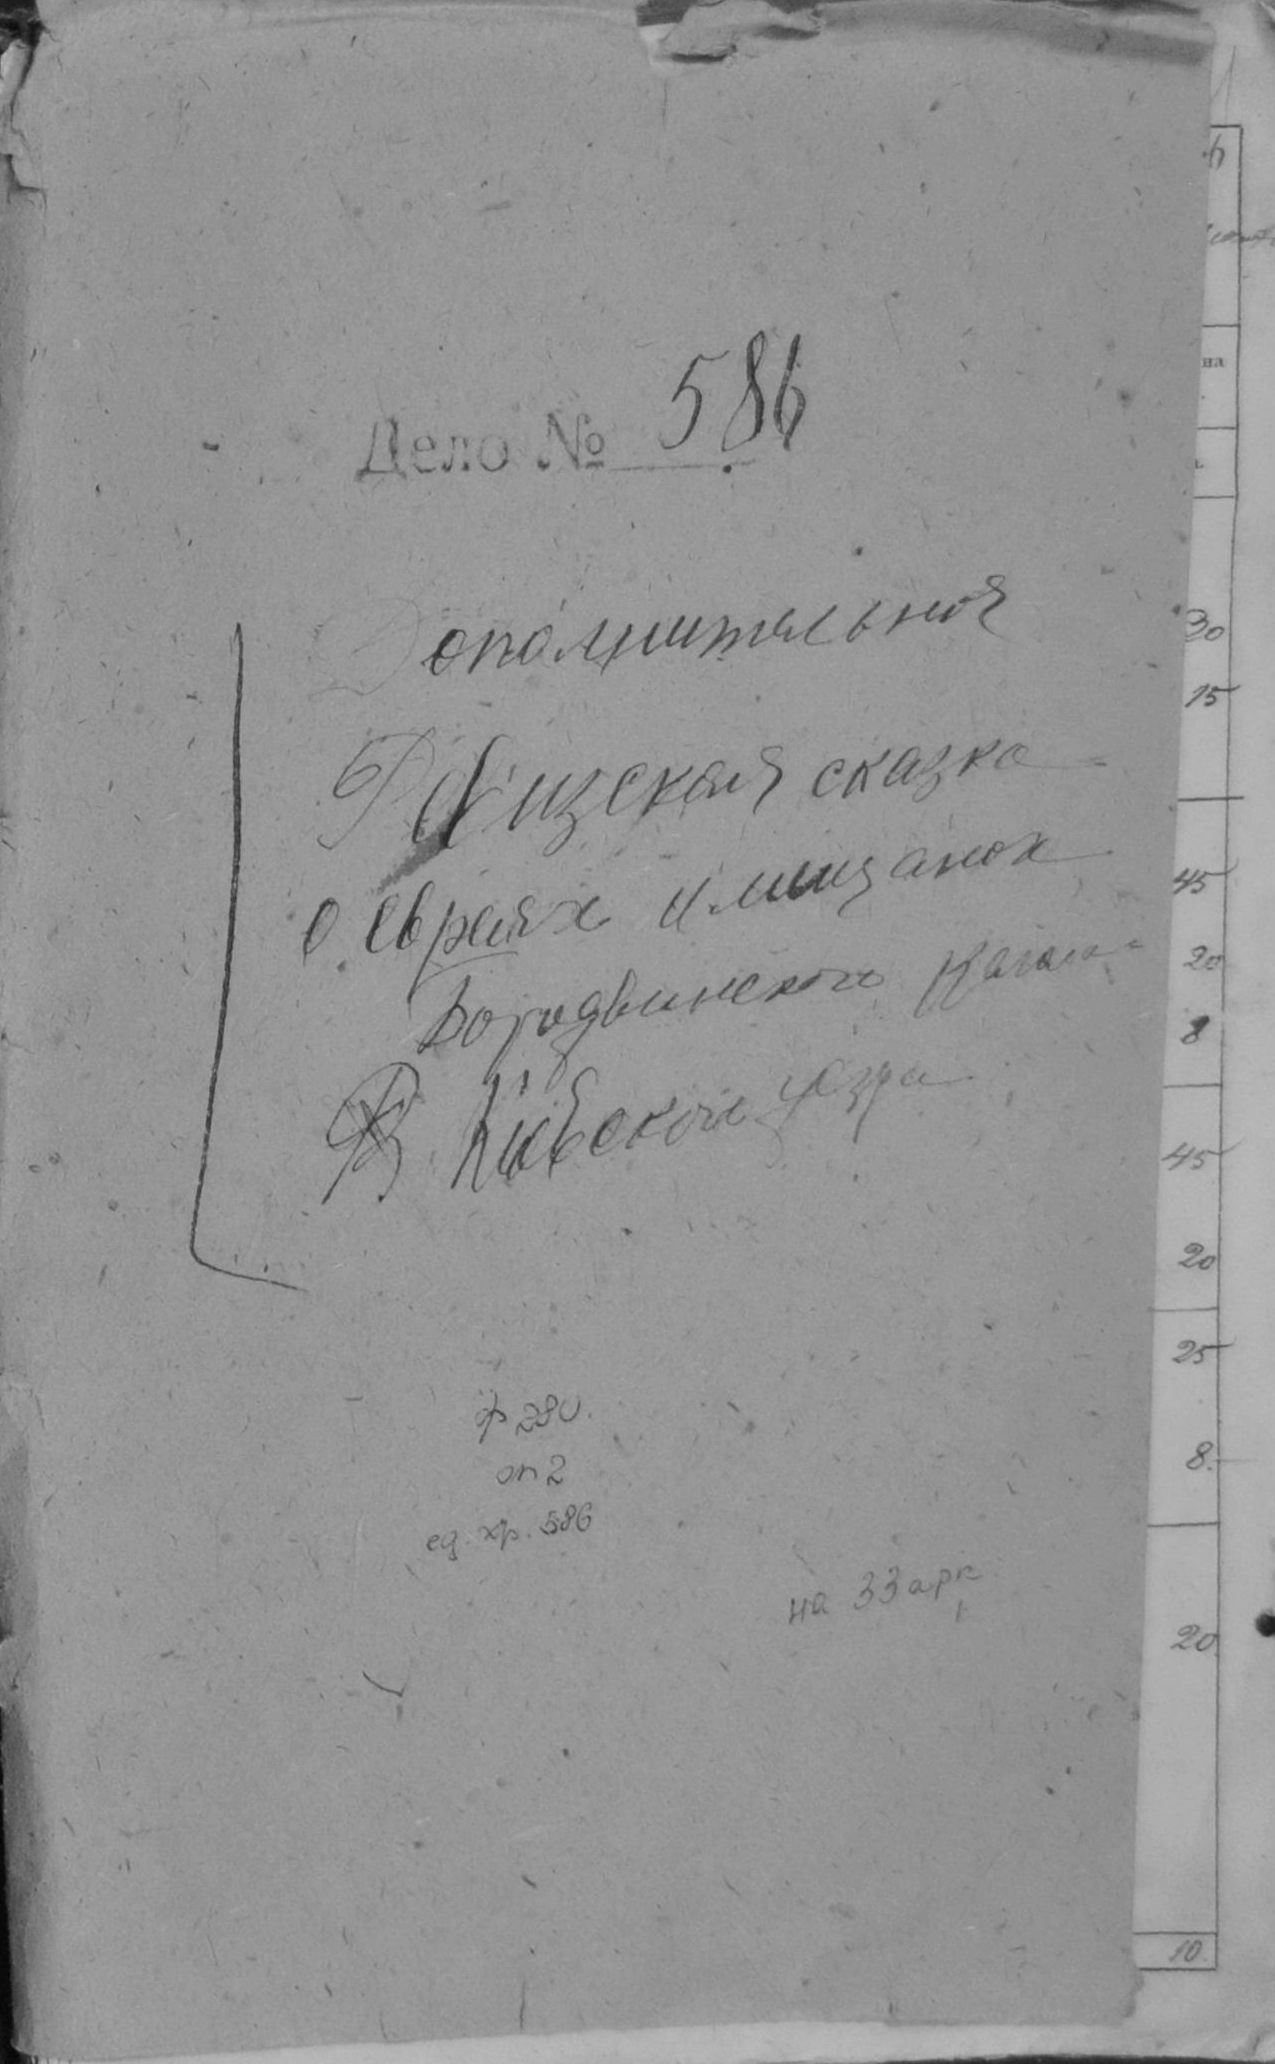 Дело № 586
Дополнительная
Ревизская сказка
о евреях и мищанах
Бородянского Кагала
В Киевском уезде
ф 280.
оп 2
ед. хр. 586
на 33 арк
на
30
15
45
20
8
45
20
25
8.
20
10.